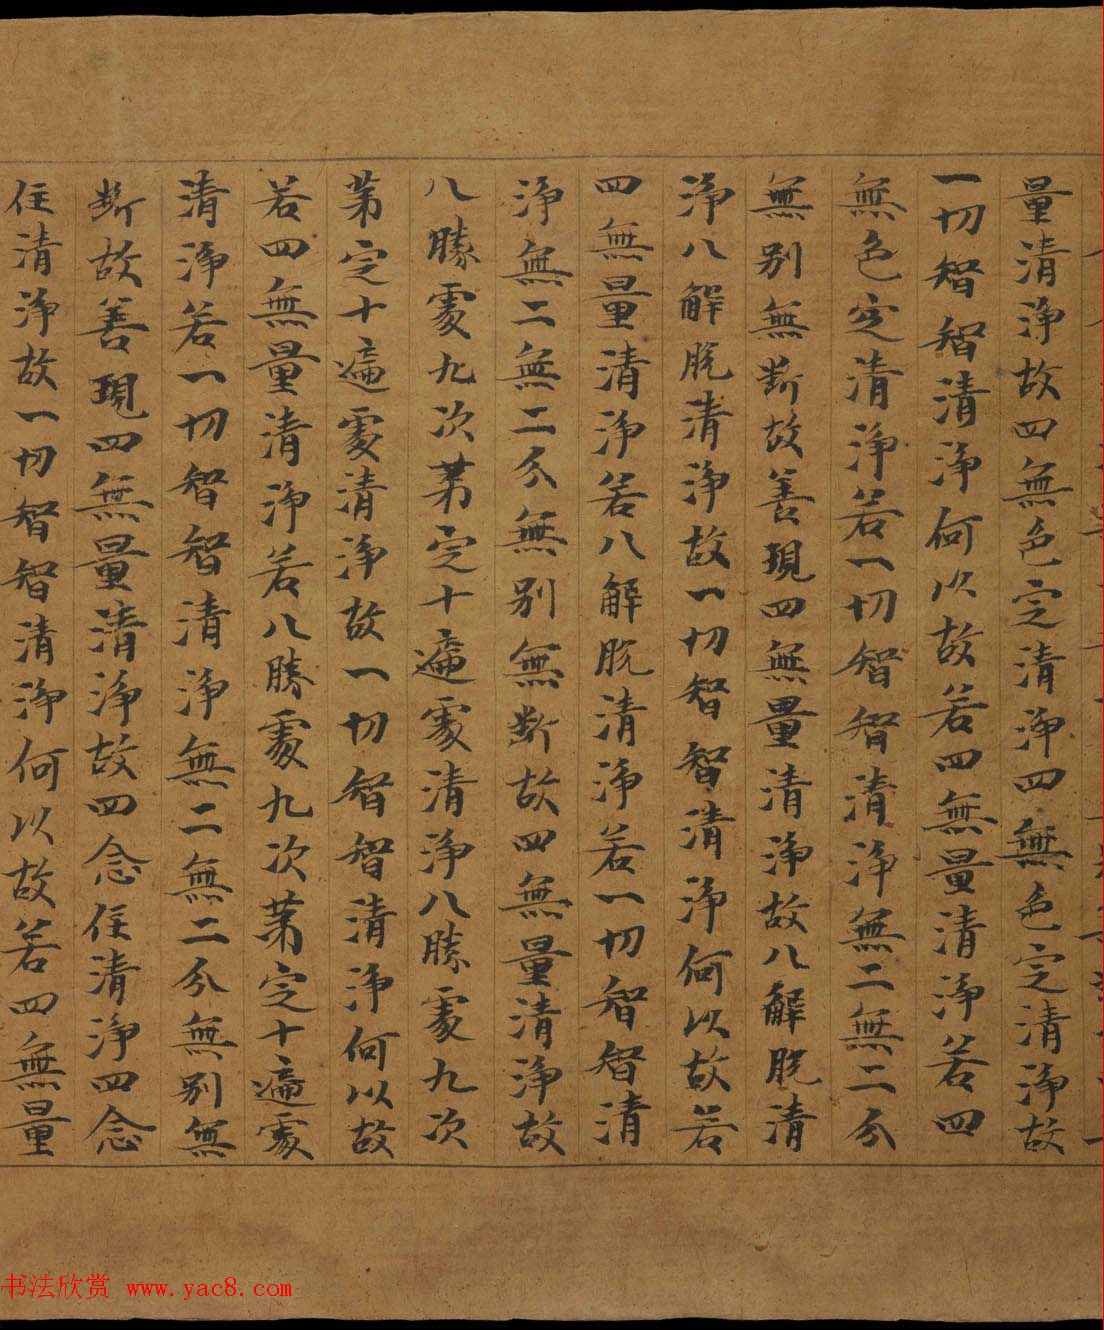 量清淨故四無色定清淨四無色定清淨故
一切智智清淨何以故若四無量清淨若四
無色定清淨若一切智智清淨無二無二分
無別無斷故善現四無量清淨故八解脫清
淨八解脫清淨故一切智智清淨何以故若
四無量清淨若八解脫清淨若一切智智清
淨無二無二分無別無斷故四無量清淨故
八勝處九次第定十遍處清淨八勝處九次
第定十遍處清淨故一切智智清淨何以故
若四無量清淨若八勝處九次第定十遍處
清淨若一切智智清淨無二無二分無別無
斷故善現四無量清淨故四念住清淨四念
住清淨故一切智智清淨何以故若四無量
书法欣赏 www.yac8.com